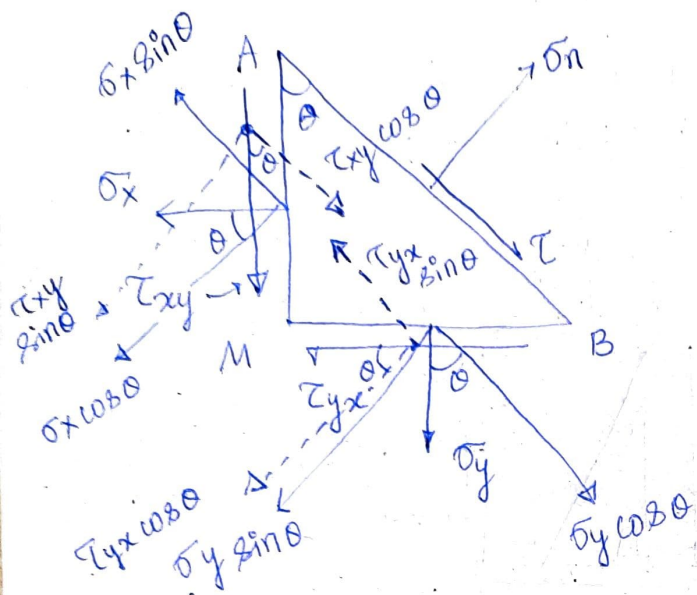 σx sinθ
A
σn
θ
τxy cosθ
θ
σx
θ
τyx sinθ
τ
τxy
sinθ
τxy
M
B
σx cosθ
θ
τyx
θ
σy
τyx cosθ
σy sinθ
σy cosθ